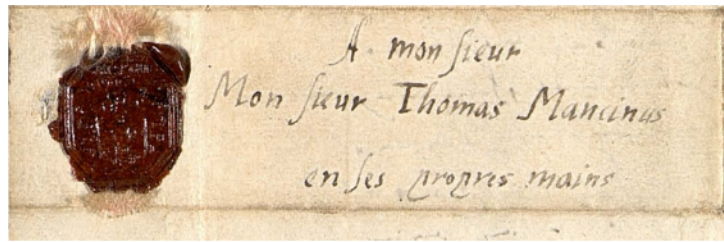 A monſieur
Mon ſieur Thomas Mancinus
en ſes propres mains